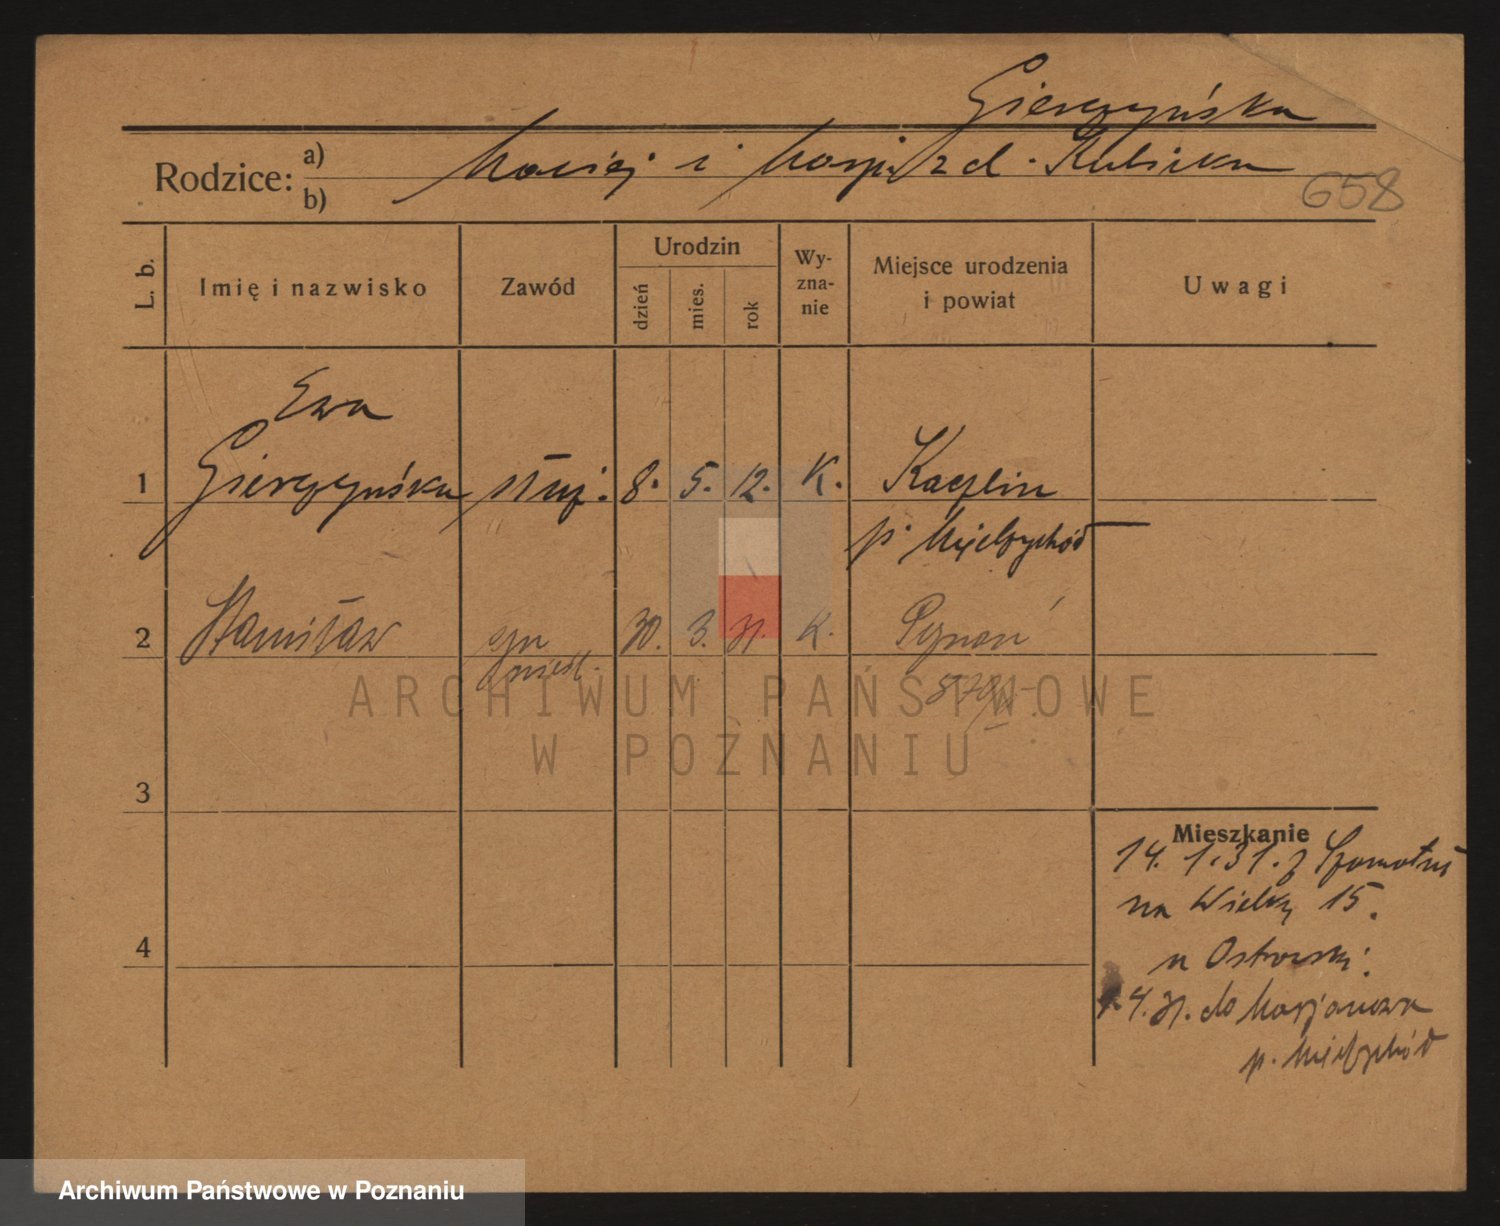 Gierczyńska
Rodzice: a) b) Maciej i Marja z d. Kubicka
658
L. b.
Imię i nazwisko
Zawód
Urodzin
dzień
mies.
rok
Wy-
zna-
nie
Miejsce urodzenia
i powiat
Uwagi
Ewa
1 Gierczyńska służ. 8. 5. 12. K. Kaczlin
p. Międzychód
2 Stanisław syn 30. 3. 31. K. Poznań
nieśl.
3
Mieszkanie
14. 1. 31. z Szamotuł
na Wielką 15.
4
u Ostrowski.
4. 31. do Marjanowa
p. Międzychód
ARCHIWUM PAŃSTWOWE
W POZNANIU
Archiwum Państwowe w Poznaniu